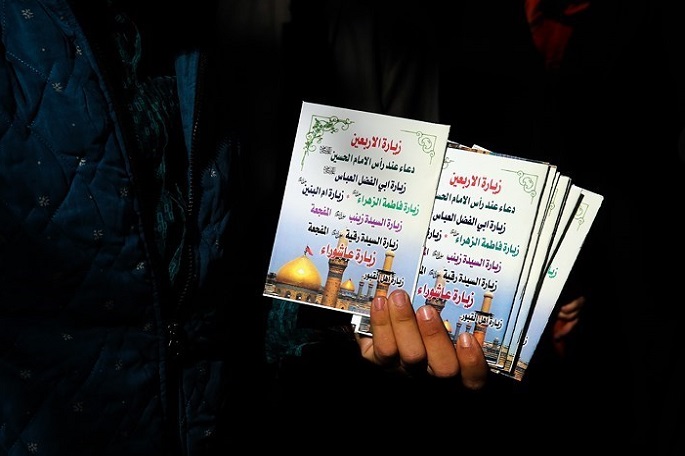 زيارة الاربعين
دعاء عند رأس الامام الحسين
زيارة ابي الفضل العباس
زيارة فاطمة الزهراء * زيارة ام البنين
زيارة السيدة زينب المفجعة
زيارة السيدة رقية المفجعة
زيارة عاشوراء
زيارة اهل القبور
زيارة الاربعين
دعاء عند رأس الامام الحسين
زيارة ابي الفضل العباس
زيارة فاطمة الزهراء * زيارة
زيارة السيدة زينب
زيارة السيدة رقية
زيارة عاشوراء
زيارة اهل القبور